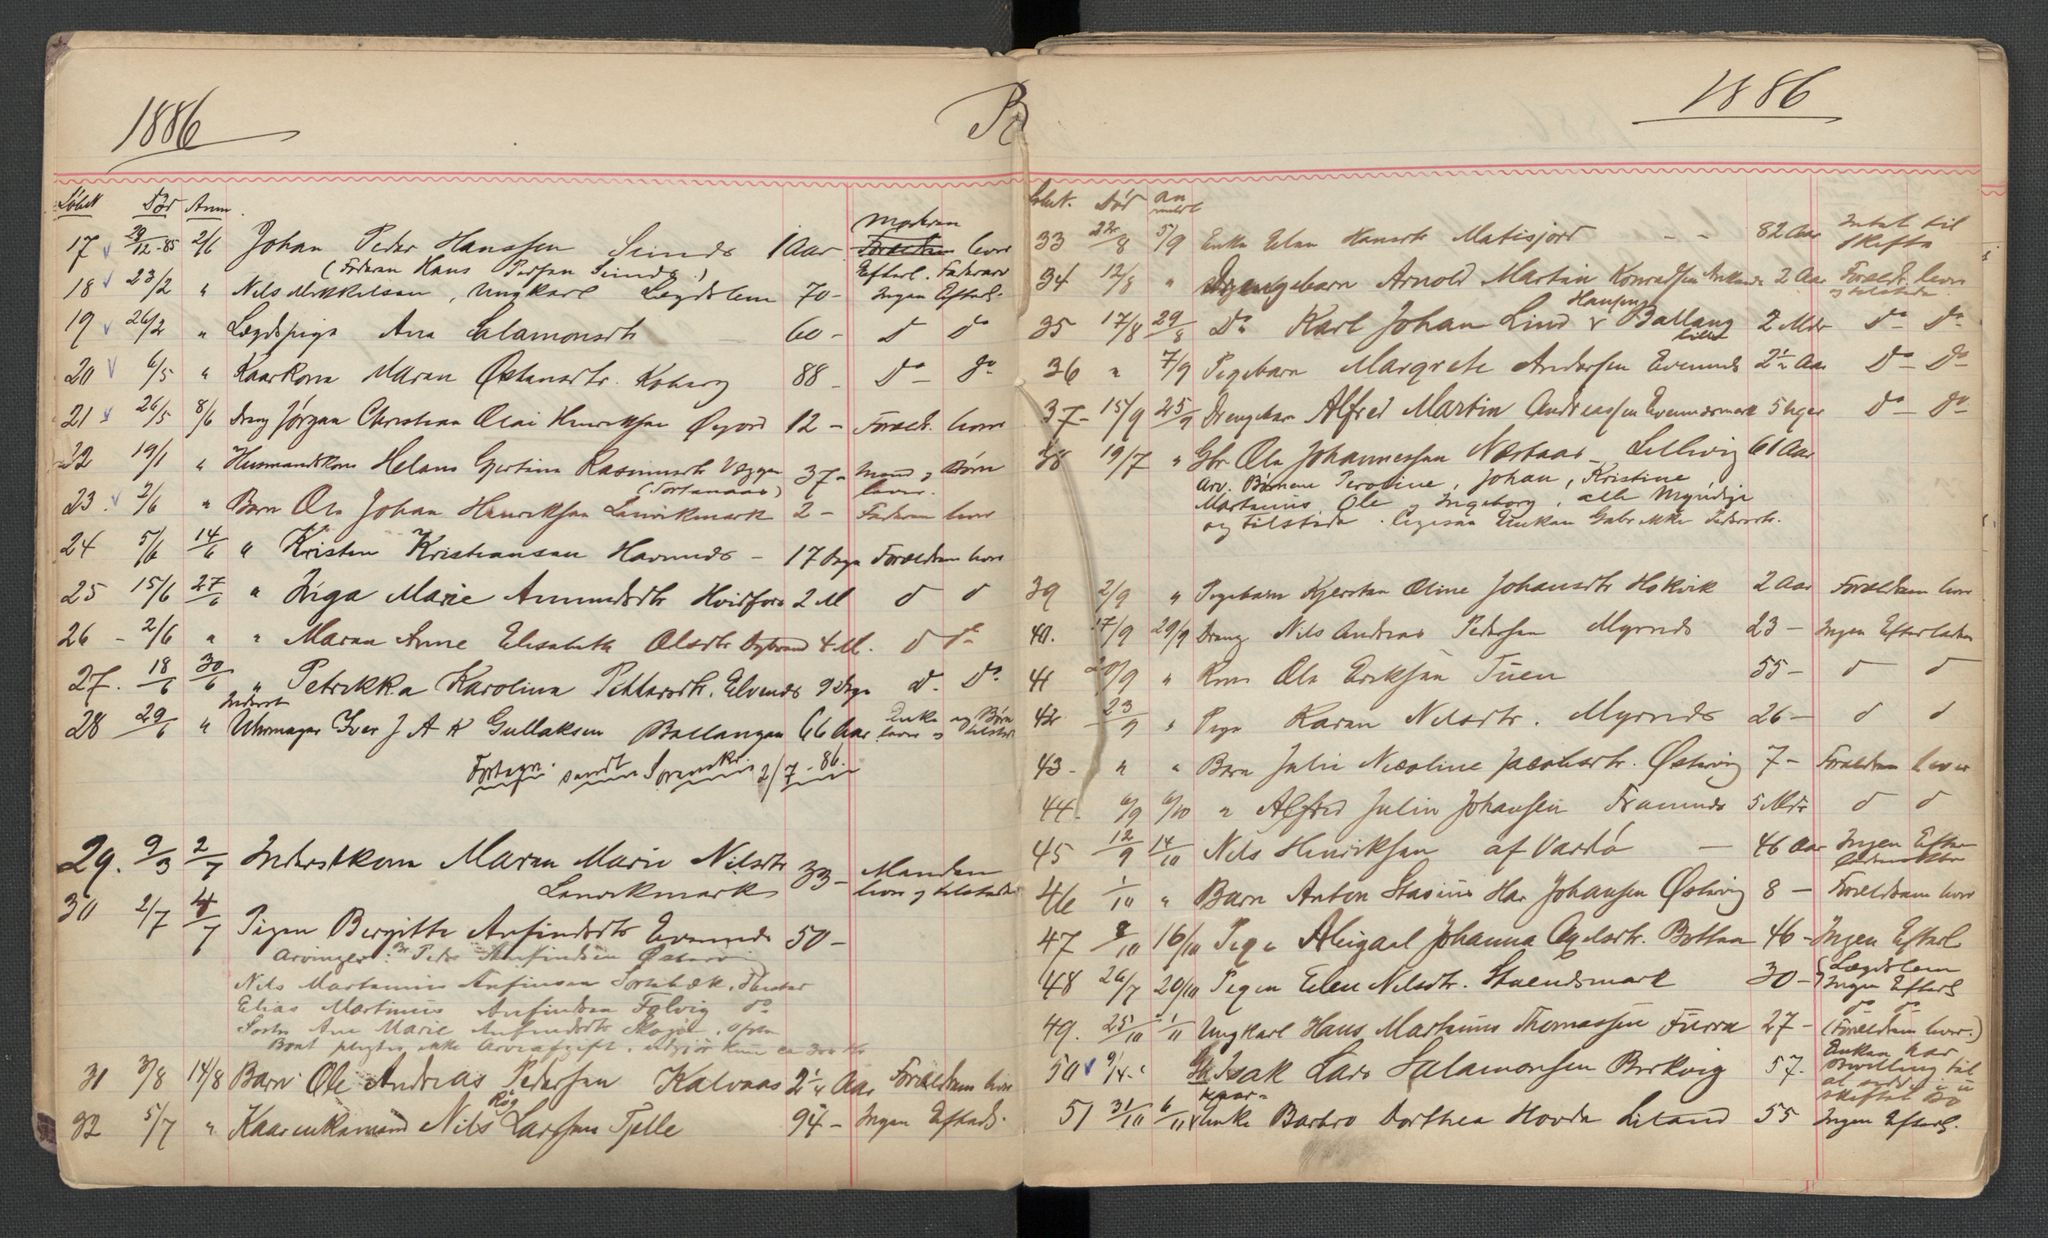 1886
Løbe N Død Anm.
17 29/12-85 2/6 Johan Peder Hanssen 1 Aar Moderen Forældren lever
(Faderen Hans Pedersen) Efterl.
18 23/2 " Nils Mikkelsen, Ungkarl Lægdslem 70 - Ingen Efterl.
19 26/2 " Lægdspige Ana Salamonsdtr 60 - d do
20 6/5 " Kaarkone Maren Østensdtr. Koberg 88 - Do do
21 26/5 8/6 Dreng Jørgen Christian Olai Henriksen 12 - Foræld. lever
22 19/1 " Husmandskone Helene Gjertine Rasmusdtr Væggen 37 - Mand og Børn
lever.
23. 2/6 " Barn Ole Johan Henriksen Lanvikmark 2 - Faderen lever
24 5/6 14/6 " Kristen Kristiansen Havnnes - 17 Dage Forældren lever
25 15/6 27/6 " Inga Marie Amundsdtr 2 M d d
26 - 2/6 " " Maren Anne Elisabeth Olsdtr 4 M. d do
27. 18/6 30/6 " Petrikka Karolina Pettersdtr. Elvenes 9 Dage d. Do
28 29/6 " Inderst
Uhrmager Iver J A K Gullaksen Ballangen 66 Aar Enke og Børn
lever og tilstede
Fortegn. sendt Sorenskr. 2/7-86.
29. 9/3 2/7 Inderstkone Maren Marie Nilsdtr 33 - Manden
Lanvikmark lever og tilstede
30 2/7 4/7 Pigen Birgitte Anfindsdtr Evenes 50 -
Arvinger: Br. Peder Anfindsen Østervig
Nils Martinus Anfinsen Sortebæk.
Elias Martinus Anfindsen Falvig do
Søster Ane Marie Anfindsdtr
Boet pligtes ikke Arveafgift, udgjør kun ca 300 Kr
31 3/8 14/8 Barn Ole Andreas Pedersen Kalvaas 2½ Aar Forældren lever
32 5/7 " Kaarenkemand Nils Røg Larssen Tjelle 94 - Ingen Efterl.
B
1886
Løbe N. Død anmeldt
33 24/8 5/9 Enke Elen Hansdtr Matisjord - - 82 Aar Intet til
Skifte
34 12/8 " Drengebarn Arnold Martin Konradsen 2 Aar Foræld. lever
og tilstede.
35 17/8 29/8 Do Karl Johan Lind Hansen Ballang 2 Mdr do do
36 " 7/9 Pigebarn Margrete Andersen Evenes 2½ Aar do do
37 - 15/9 25/9 Drengebar Alfred Martin Andreassen Evenesmark 5 Uger do do
38 19/7 " Gbr Ole Johannessen Næsaas Lillevig 61 Aar
Arv. Børnene Peroline, Johan, Kristine
Martinus Ole og Ingeborg, alle Myndige
og tilstede. Enken
39 2/9 " Pigebarn Kjersten Oline Johansdtr Hokvik 2 Aar Forældren lever
40. 17/9 29/9 Dreng Nils Andreas Pedersen Myrnes 23 - Ingen Efterladen
41 20/9 " Kone Ole Eriksen Tuen 55 - d d
42 23/9 " Pige Karen Nilsdtr. Myrnes 26 - d d
43 - " " Barn Julie Nicoline Jacobsdtr. Østervig 7 - Forældren lever
44. 6/9 6/10 " Alfred Julin Johansen Framnes 5 Mdr d d
45 12/9 14/10 Nils Henriksen af Vardø - 46 Aar Ingen Efter
46 1/10 " Barn Anton Stasius Johansen Østervig 8 - Forældren lever
47 8/10 16/10 Pige Abigael Johanna Axelsdtr. Botten 46 - Ingen Efterl
48 26/7 20/10 Pigen Elen Nilsdtr. Stuenesmark 30 - Lægdslem
Ingen Efterl
49. 25/10 1/11 Ungkarl Hans Martinus Thomassen 27 - do do
(Forældren lever.)
50 9/4 Gbr Isak Lars Salamonsen Borkvig 57. Enken har
Bevilling til
51 31/10 6/11 Kaar-
enke Barbro Dorthea Hovde Liland 55 Ingen Efterl.